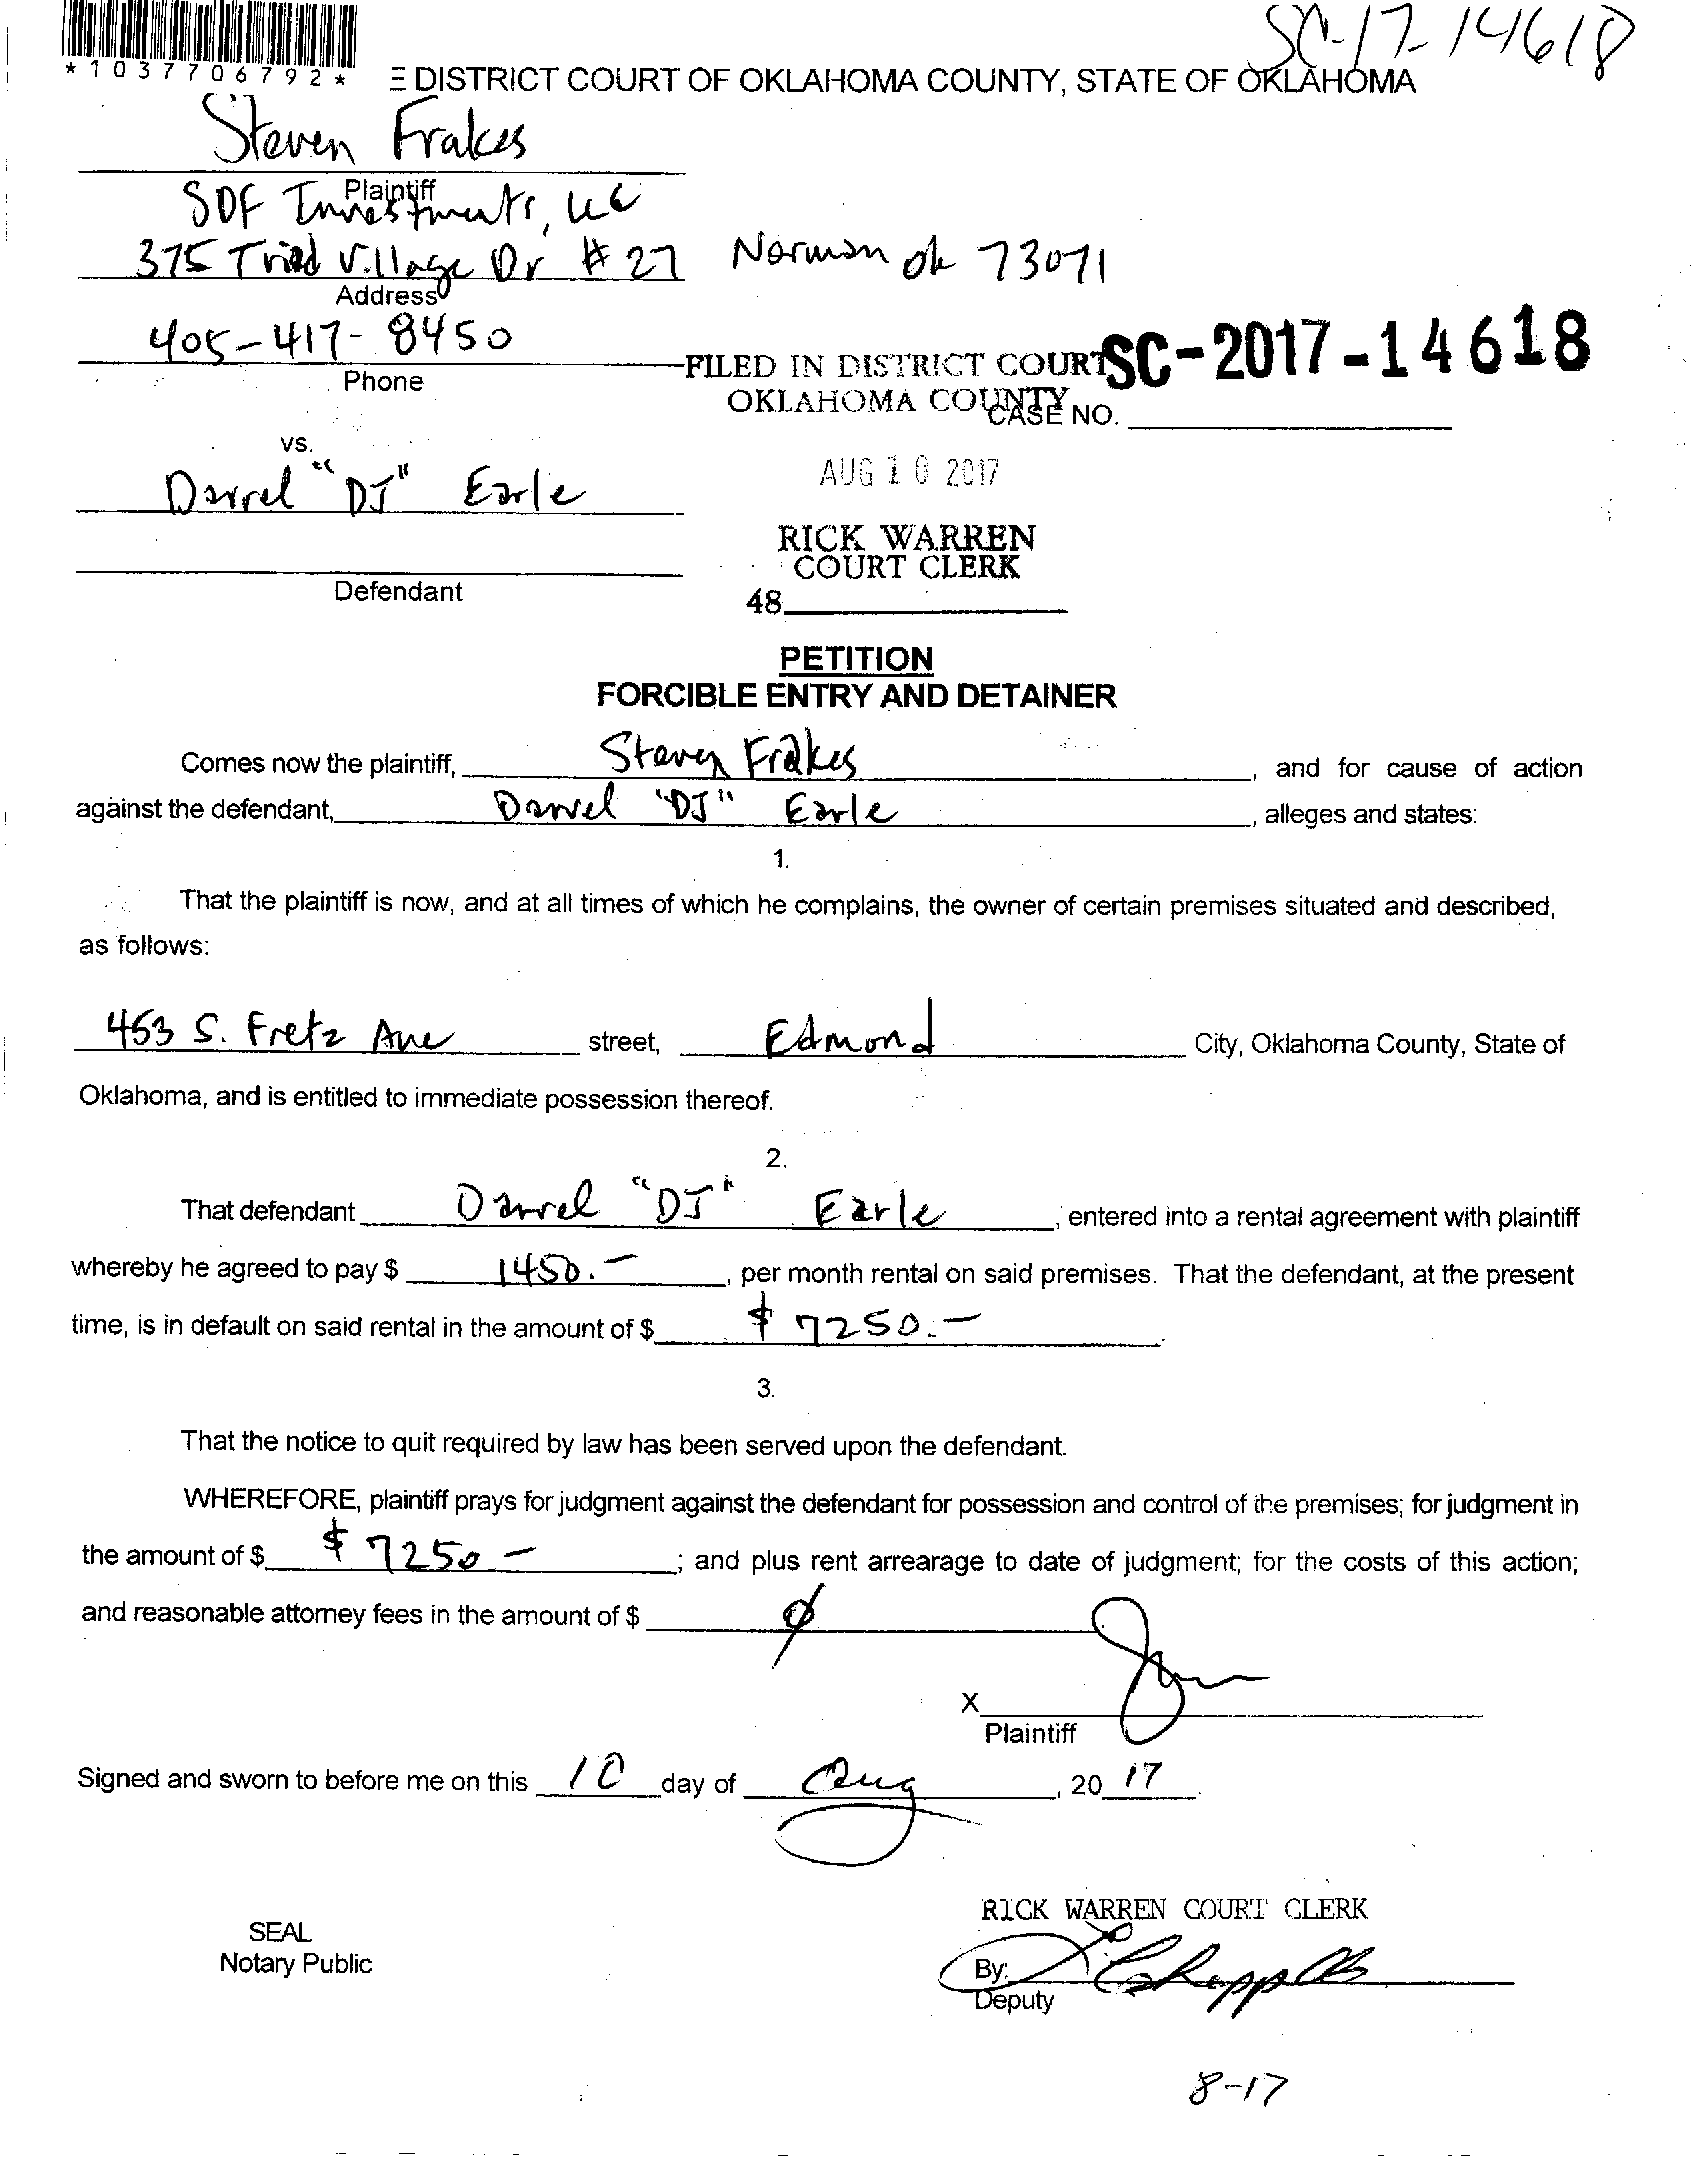 SC-17-14618
*1037706792*
E DISTRICT COURT OF OKLAHOMA COUNTY, STATE OF OKLAHOMA
Steven Frakes
Plaintiff
SDF Investments, LLC
375 Triad Village Dr # 27 Norman OK 73071
Address
405-417-8450
Phone
FILED IN DISTRICT COURT
OKLAHOMA COUNTY
SC-2017-14618
CASE NO.
vs.
AUG 10 2017
Darrel "DJ" Earle
RICK WARREN
COURT CLERK
Defendant
48
PETITION
FORCIBLE ENTRY AND DETAINER
Comes now the plaintiff, Steven Frakes, and for cause of action
against the defendant, Darrel "DJ" Earle, alleges and states:
1.
That the plaintiff is now, and at all times of which he complains, the owner of certain premises situated and described,
as follows:
453 S. Fretz Ave street, Edmond City, Oklahoma County, State of
Oklahoma, and is entitled to immediate possession thereof.
2.
That defendant Darrel "DJ" Earle, entered into a rental agreement with plaintiff
whereby he agreed to pay $ 1450.-, per month rental on said premises. That the defendant, at the present
time, is in default on said rental in the amount of $ $ 7250.-.
3.
That the notice to quit required by law has been served upon the defendant.
WHEREFORE, plaintiff prays for judgment against the defendant for possession and control of the premises; for judgment in
the amount of $ $ 7250 -; and plus rent arrearage to date of judgment; for the costs of this action;
and reasonable attorney fees in the amount of $ ∅
X
Plaintiff
Signed and sworn to before me on this 10 day of Aug, 20 17.
RICK WARREN COURT CLERK
SEAL
Notary Public
By:
Deputy
8-17